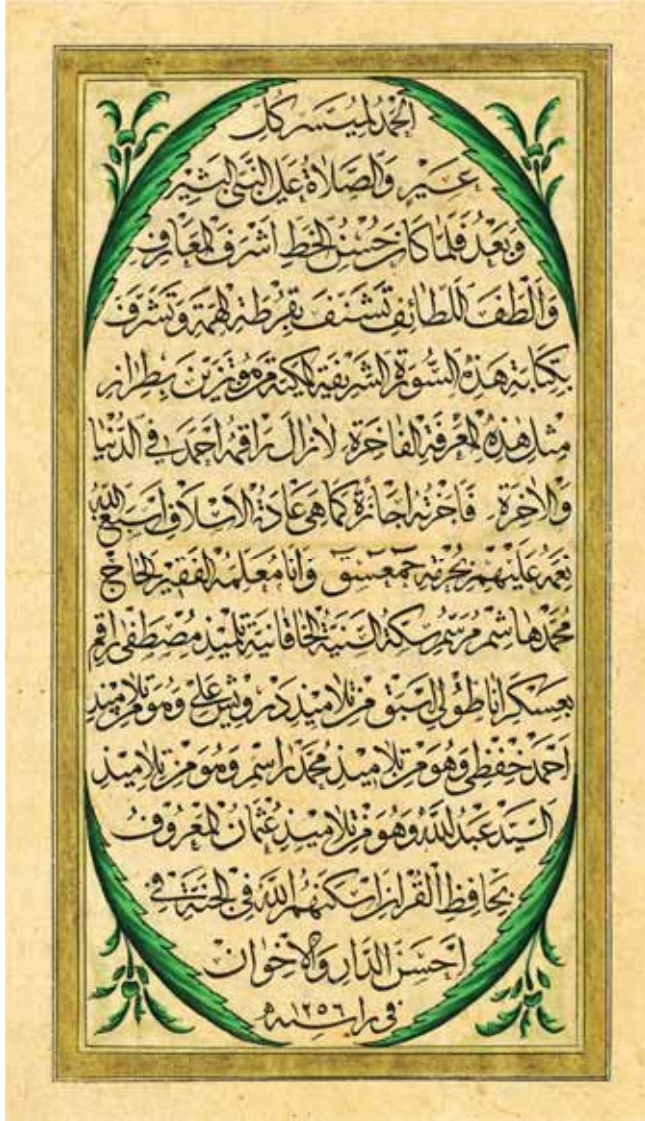 الحمد لميسر كل
عسير والصلاة على النبي البشير
وبعد فلما كان حسن الخط اشرف المعارف
والطف اللطائف تشنف بقرطة الهمة وتشرف
بكتابة هذه السورة الشريفة الكنة بطراز
مثل هذه المعرفة الفاخرة لازال راقمه احمد في الدنيا
والاخرة فاجزته اجازة كما هي عادة الاسلاف اسبغ الله
نعمه عليهم بحرمة حمعسق وانا معلمه الفقير الحاج
محمد هاشم سكة السنية الخاقانية تلميذ مصطفى راقم
بعسكر اناطولي السبق من تلاميذ درويش علي وهو من تلاميذ
احمد حفظي وهو من تلاميذ محمد راسم وهو من تلاميذ
السيد عبد الله وهو من تلاميذ عثمان المعروف
بحافظ القران اسكنهم الله في الجنة في
احسن الدار والاخوان
في را سنه ١٢٥٦